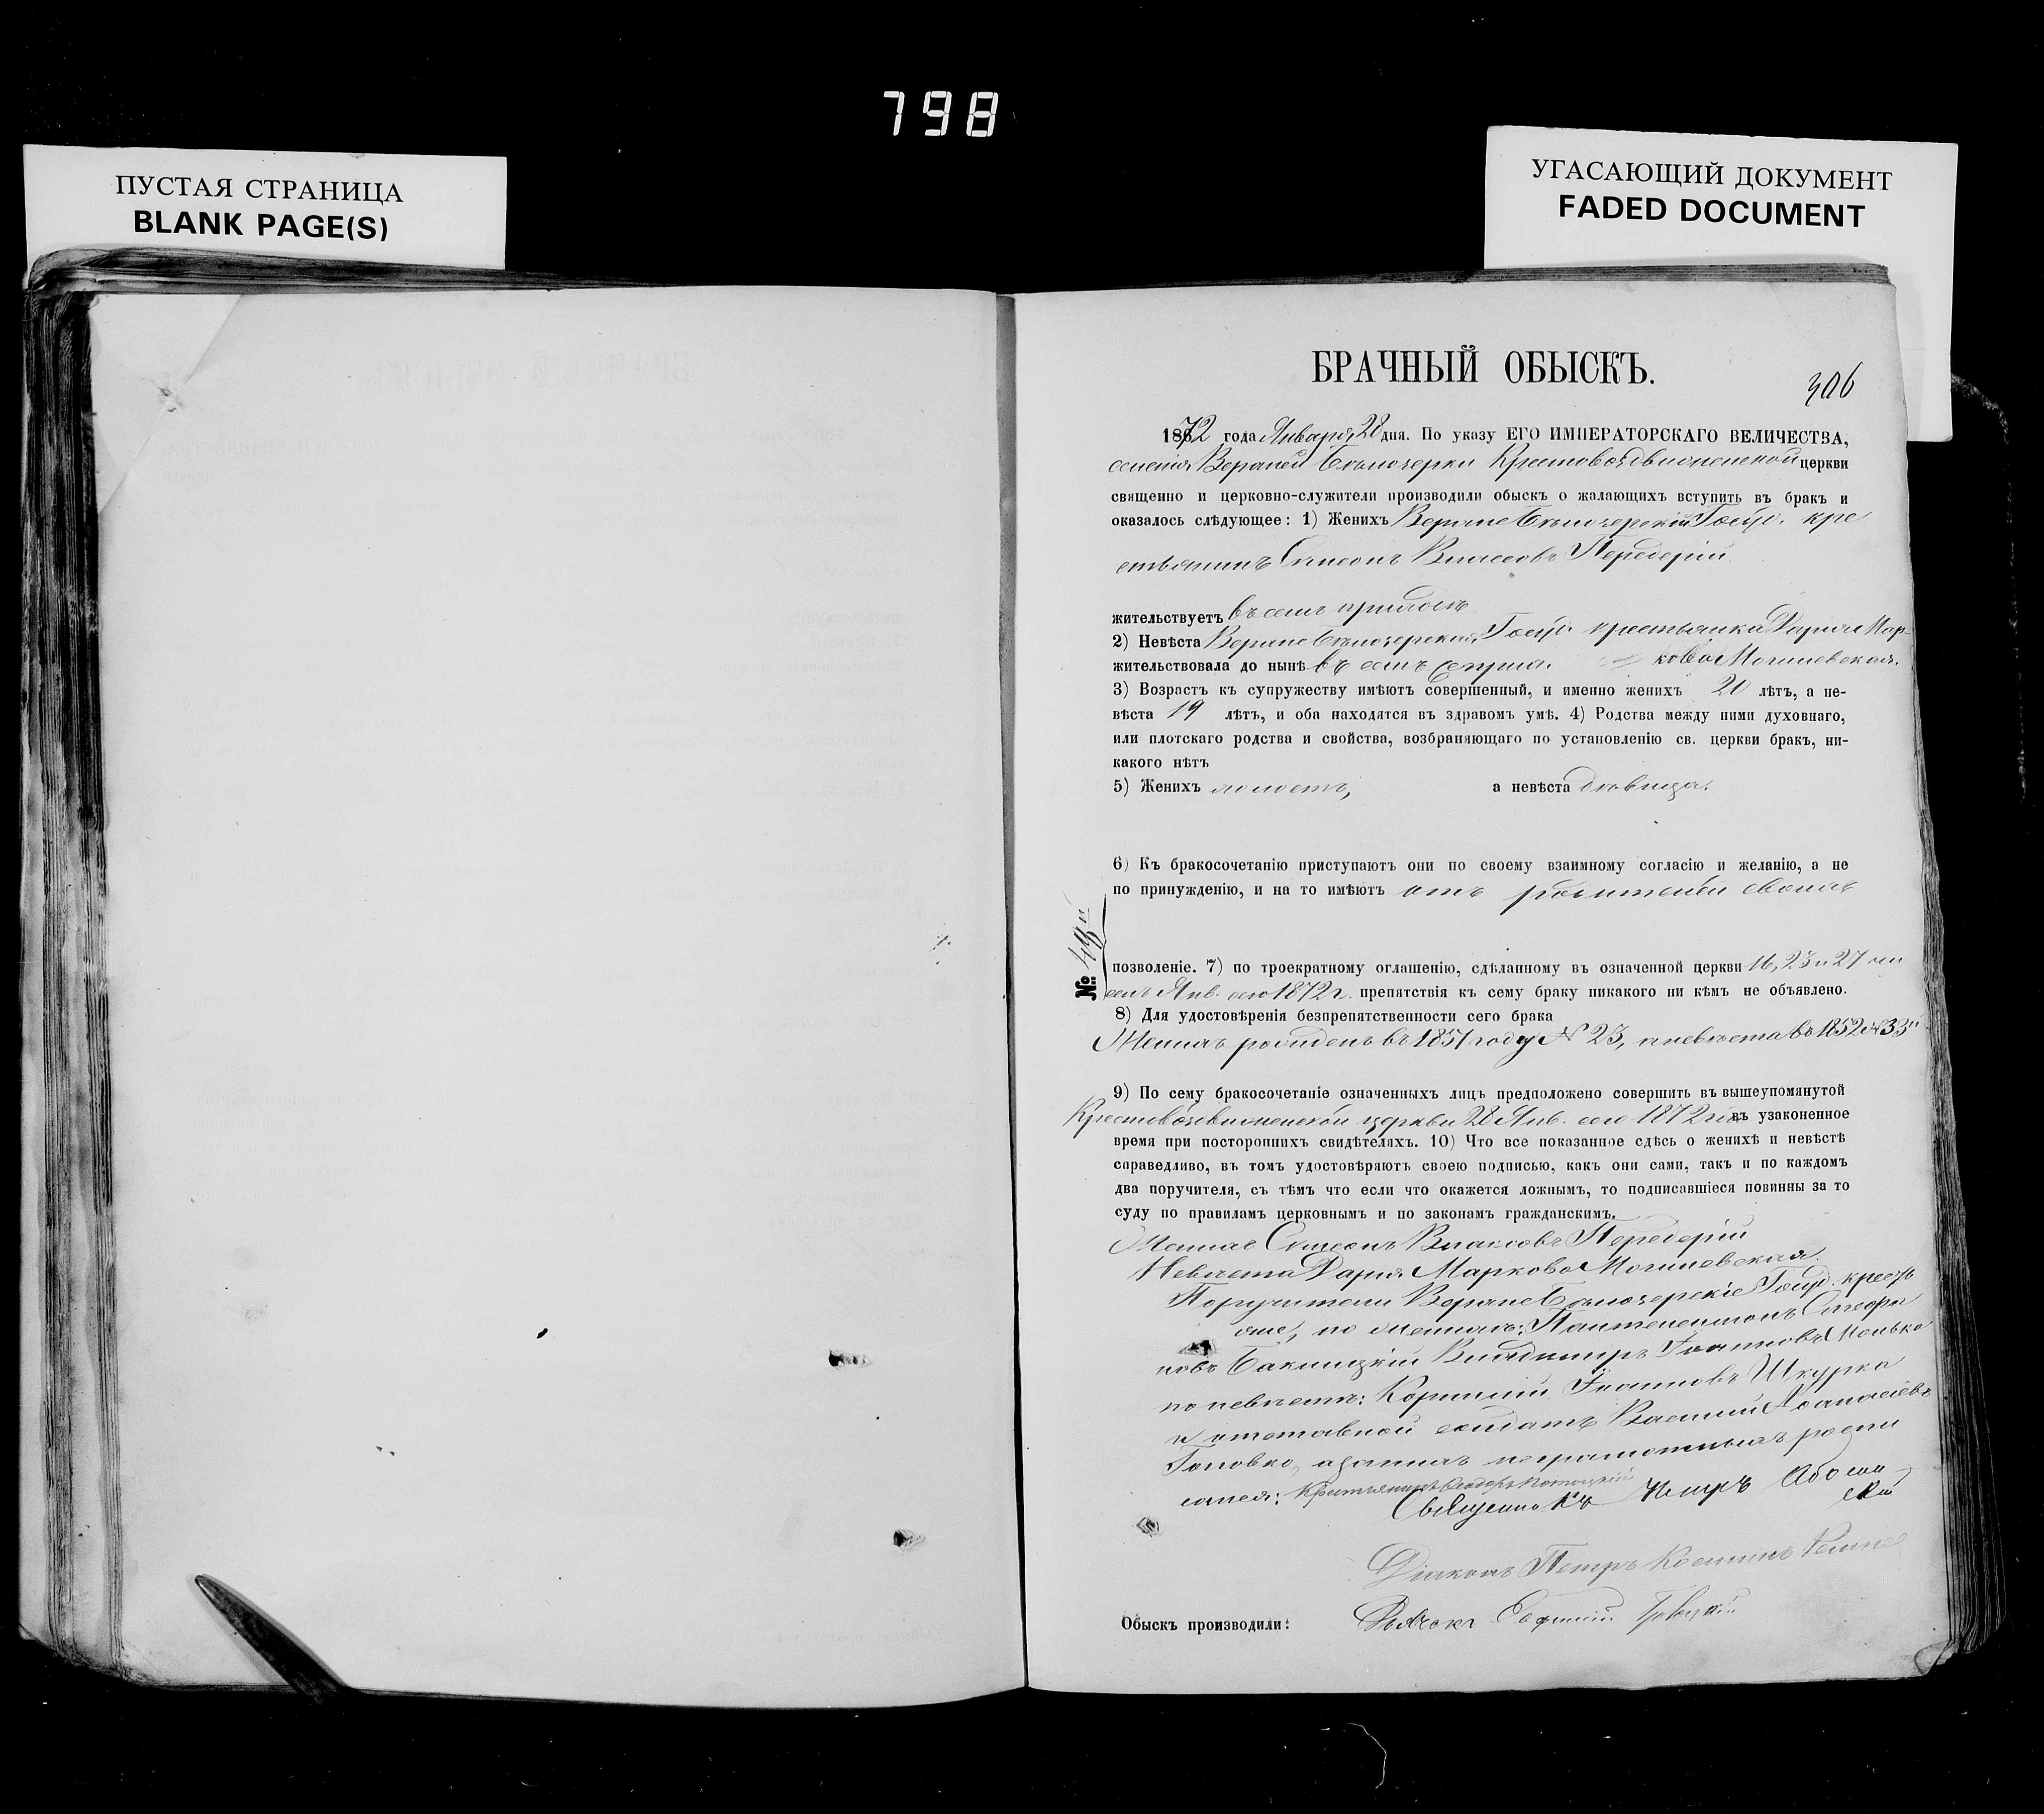 798
ПУСТАЯ СТРАНИЦА
BLANK PAGE(S)
УГАСАЮЩИЙ ДОКУМЕНТ
FADED DOCUMENT
БРАЧНЫЙ ОБЫСКЪ.
306
1872 года Января 28 дня. По указу ЕГО ИМПЕРАТОРСКАГО ВЕЛИЧЕСТВА,
селенія Верхней Бѣлозерки Крестовоздвиженской церкви
священно и церковно-служители производили обыскъ о жалающихъ вступить въ бракъ и
оказалось слѣдующее: 1) Женихъ Верхне Бѣлозерскій Госуд. кре
стьянинъ Сѵмеонъ Власовъ Передерій
жительствуетъ въ семъ приходѣ
2) Невѣста Верхне Бѣлозерская Госуд. крестьянка Дарія Мар-
жительствовала до нынѣ въ семъ же прих. кова Могилевская.
3) Возрастъ къ супружеству имѣютъ совершенный, и именно женихъ 20 лѣтъ, а не-
вѣста 19 лѣтъ, и оба находятся въ здравомъ умѣ. 4) Родства между ними духовнаго,
или плотскаго родства и свойства, возбраняющаго по установленію св. церкви бракъ, ни-
какого нѣтъ
5) Женихъ холостъ, а невѣста дѣвица.
6) Къ бракосочетанію приступаютъ они по своему взаимному согласію и желанію, а не
по принужденію, и на то имѣютъ отъ родителей своихъ
№ 48й
позволеніе. 7) по троекратному оглашенію, сдѣланному въ означенной церкви 16, 23 и 27 чи
селъ Янв. сего 1872 г. препятствія къ сему браку никакого ни кѣмъ не объявлено.
8) Для удостовѣренія безпрепятственности сего брака
Женихъ рожденъ въ 1851 году № 23, а невѣста въ 1852 № 33й
9) По сему бракосочетаніе означенныхъ лицъ предположено совершить въ вышеупомянутой
Крестовоздвиженской церкви 28 Янв. сего 1872 года въ узаконенное
время при постороннихъ свидѣтеляхъ. 10) Что все показанное сдѣсь о женихѣ и невѣстѣ
справедливо, въ томъ удостовѣряютъ своею подписью, какъ они сами, такъ и по каждомъ
два поручителя, съ тѣмъ что если что окажется ложнымъ, то подписавшіеся повинны за то
суду по правиламъ церковнымъ и по законамъ гражданскимъ.
Женихъ Сѵмеонъ Власовъ Передерій
Невѣста Дарія Маркова Могилевская
Поручители Верхне Бѣлозерскіе Госуд. кресть
яне, по женихѣ: Пантелеимонъ Стефа
новъ Бакницкій Владиміръ Іоанновъ Менько
по невѣстѣ: Корнилій Іоанновъ Шкурка
и отставной солдатъ Василій Аѳанасіевъ
Головко, а за нихъ неграмотныхъ роспи
сался: Крестьянинъ Ѳеодоръ Потоцкій
Священникъ Петръ
Діаконъ Петръ Косминъ
Обыскъ производили: Дьячокъ Евфимій